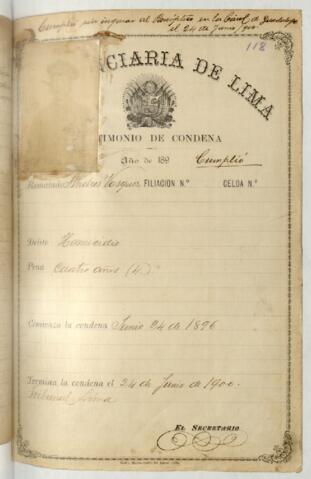 Cumplió sin ingresar al Panóptico en la Cárcel de Guadalupe
el 24 de Junio, 900
118
NCIARIA DE LIMA
TIMONIO DE CONDENA
Año de 189 Cumplió
Rematado Andres Vasquez FILIACION N.º CELDA N.º
Delito Homicidio
Pena Cuatro años (4)
Comienza la condena Junio 24 de 1896
Termina la condena el 24 de Junio de 1900.
Tribunal Lima
EL SECRETARIO